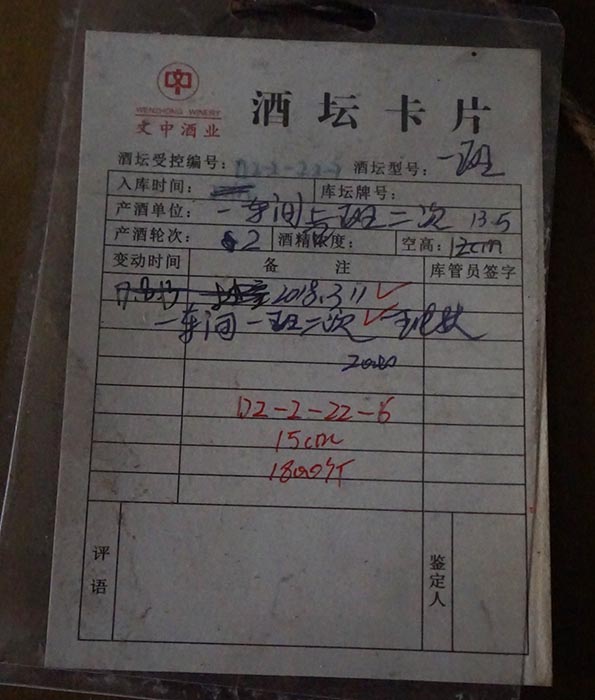 中
WENZHONG WINERY
文中酒业
酒坛卡片
酒坛受控编号： 酒坛型号：一班
入库时间： 库坛牌号：
产酒单位：一车间 班二次 13.5
产酒轮次：2 酒精浓度： 空高：12cm
变动时间 备注 库管员签字
2018.3.11
一车间一班二次
D2-2-22-6
15cm
1800斤
评语 鉴定人